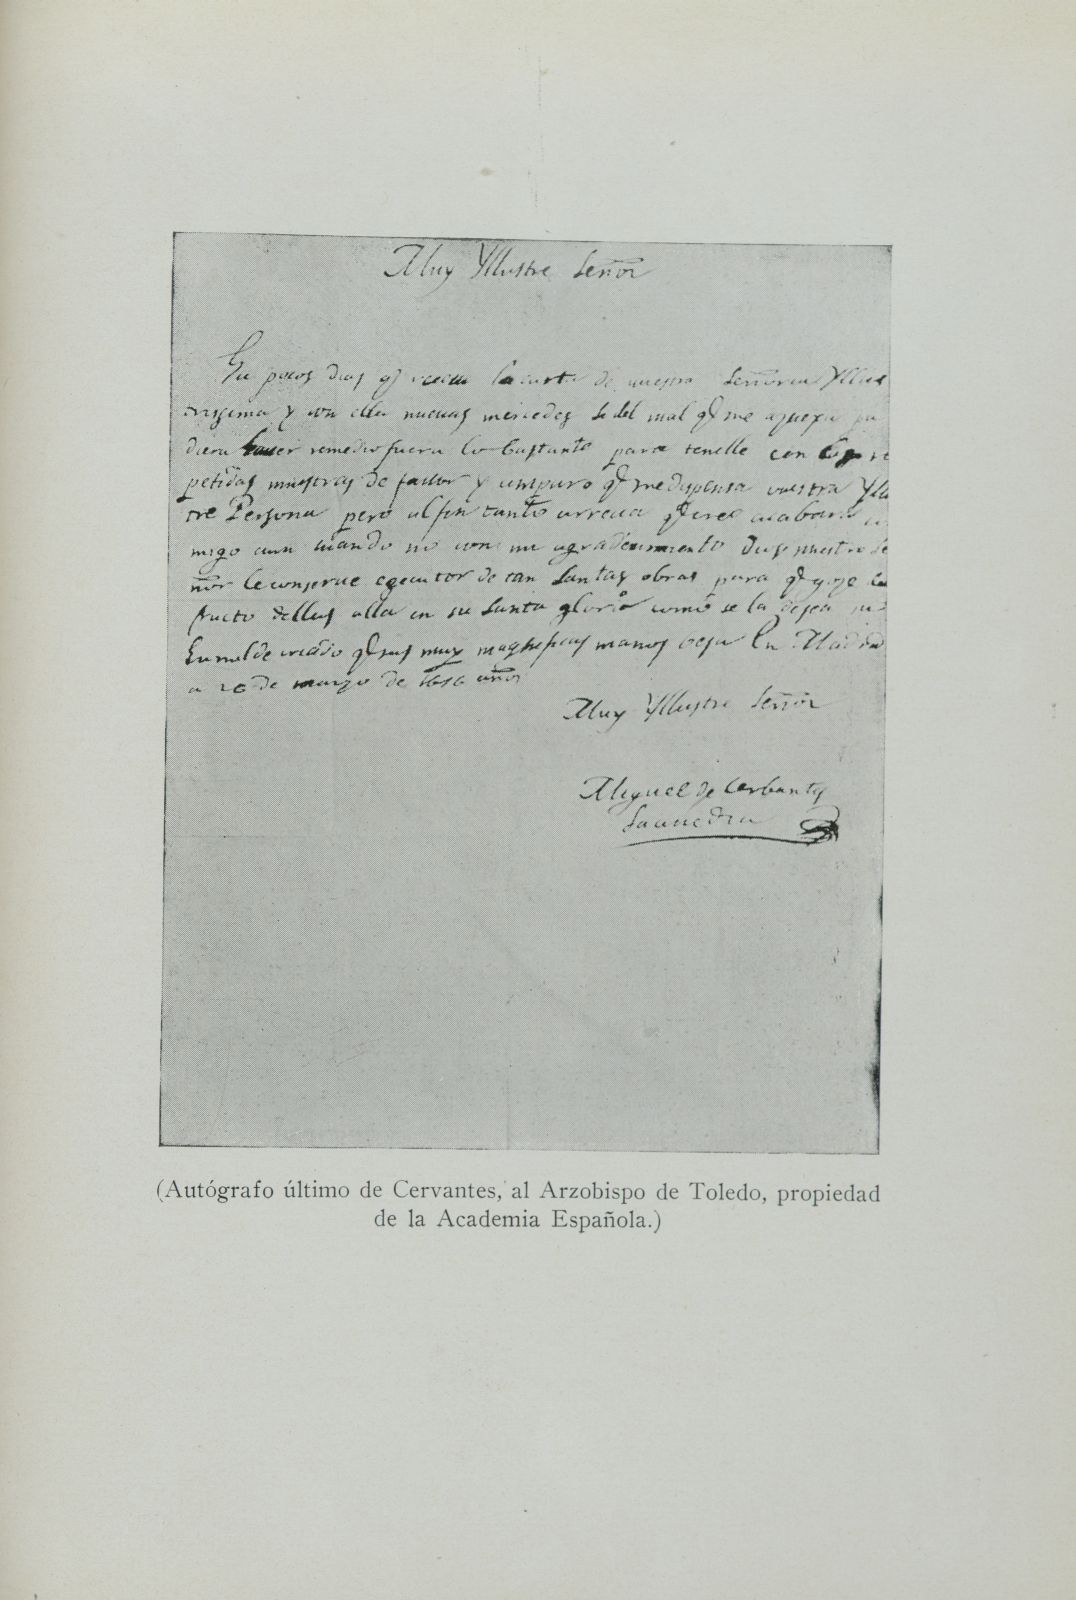 Muy Yllustre Señor
Ha pocos dias q̃ receui la carta de vuestra Señoria Yllus
trissima y con ella nueuas mercedes si del mal q̃ me aquexa pu
diera hauer remedio fuera lo bastante para tenelle con las re
petidas muestras de fauor y amparo q̃ me dispensa vuestra Yllus
tre Persona pero al fin tanto arrecia q̃ creo acabara con
migo aun cuando no con mi agradecimiento Dios nuestro Se
ñor le conserue egecutor de tan Santas obras para q̃ goze del
fructo dellas alla en su Santa gloria como se la desea su
humilde criado q̃ sus muy magnificas manos besa En Madrid
a 26 de marzo de 1616 años
Muy Yllustre Señor
Miguel de Cerbantes
Saauedra
(Autógrafo último de Cervantes, al Arzobispo de Toledo, propiedad
de la Academia Española.)